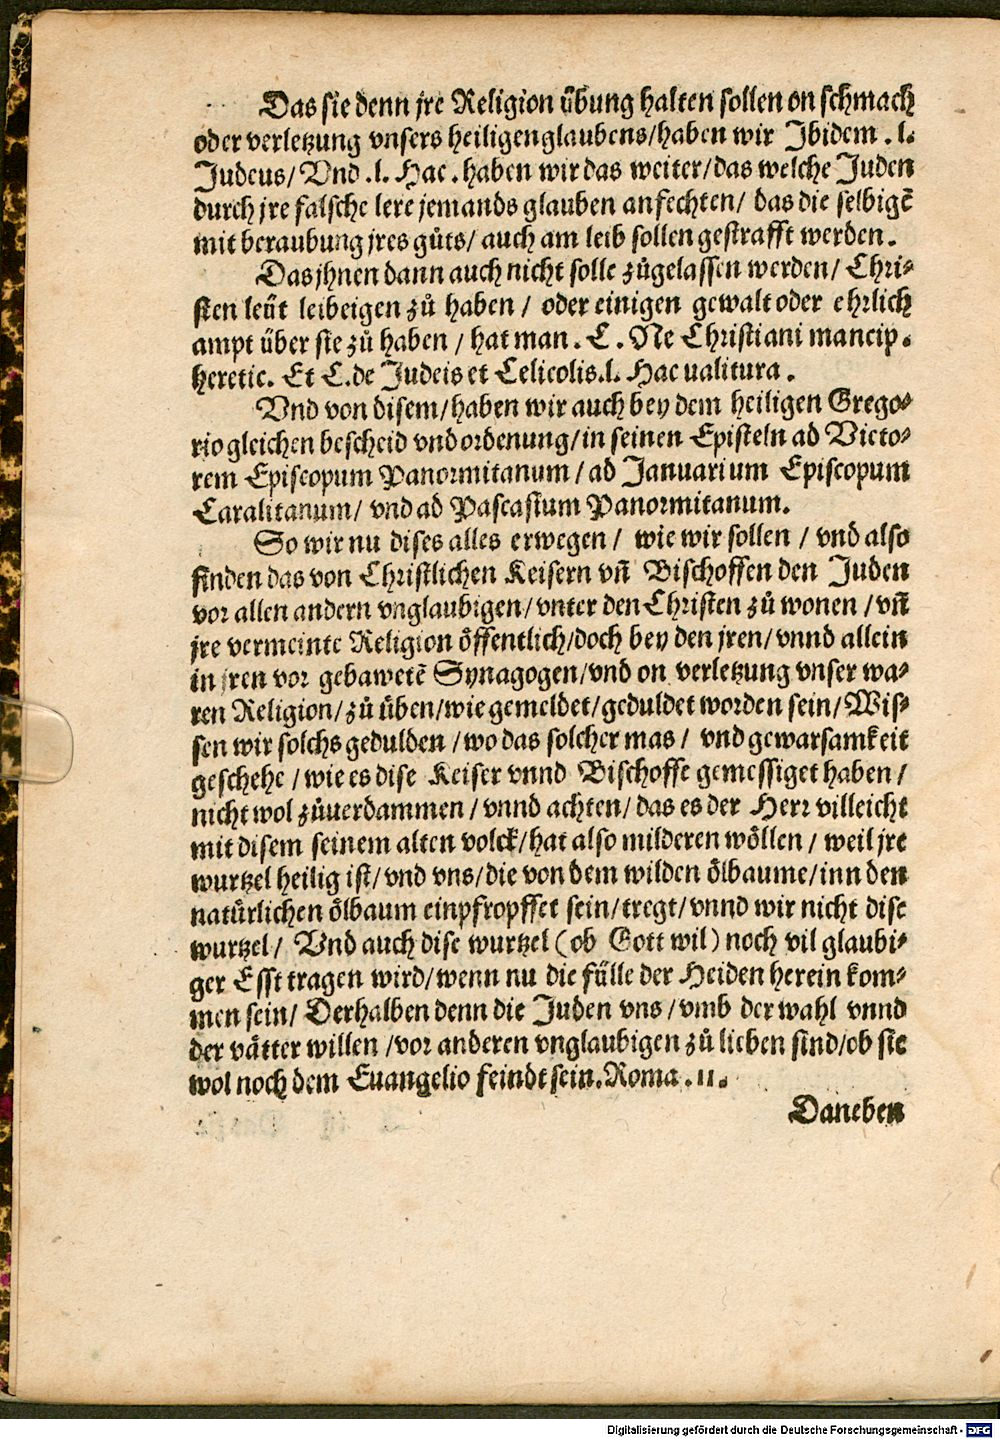 Das sie denn jre Religion übung halten sollen on schmach
oder verletzung vnsers heiligen glaubens/ haben wir Ibidem .l.
Judeus/ Vnd .l. Hac . haben wir das weiter/ das welche Juden
durch jre falsche lere jemands glauben anfechten/ das die selbigẽ
mit beraubung jres gůts/ auch am leib sollen gestrafft werden.
Das jhnen dann auch nicht solle zůgelassen werden/ Chri⸗
sten leüt leibeigen zů haben / oder einigen gewalt oder ehrlich
ampt über sie zů haben / hat man . C . Ne Christiani mancip.
heretic. Et C. de Judeis et Celicolis.l. Hac ualitura .
Vnd von disem/ haben wir auch bey dem heiligen Grego⸗
rio gleichen bescheid vnd ordenung/ in seinen Episteln ad Victo⸗
rem Episcopum Panormitanum / ad Januarium Episcopum
Caralitanum/ vnd ad Pascasium Panormitanum.
So wir nu dises alles erwegen / wie wir sollen / vnd also
finden das von Christlichen Keisern vñ Bischoffen den Juden
vor allen andern vnglaubigen/ vnter den Christen zů wonen / vñ
jre vermeinte Religion öffentlich/ doch bey den jren/ vnnd allein
in jren vor gebawetẽ Synagogen/ vnd on verletzung vnser wa⸗
ren Religion/ zů üben/ wie gemeldet/ geduldet worden sein/ Wis⸗
sen wir solchs gedulden / wo das solcher mas / vnd gewarsamkeit
geschehe / wie es dise Keiser vnnd Bischoffe gemessiget haben /
nicht wol zůuerdammen / vnnd achten/ das es der Herr villeicht
mit disem seinem alten volck/ hat also milderen wöllen / weil jre
wurtzel heilig ist/ vnd vns/ die von dem wilden ölbaume/ inn den
natürlichen ölbaum einpfropffet sein/ tregt/ vnnd wir nicht dise
wurtzel/ Vnd auch dise wurtzel (ob Gott wil) noch vil glaubi⸗
ger Esst tragen wird/ wenn nu die fülle der Heiden herein kom⸗
men sein/ Derhalben denn die Juden vns / vmb der wahl vnnd
der vätter willen / vor anderen vnglaubigen zů lieben sind/ ob sie
wol noch dem Euangelio feindt sein. Roma . 11.
Daneben
Digitalisierung gefördert durch die Deutsche Forschungsgemeinschaft - DFG